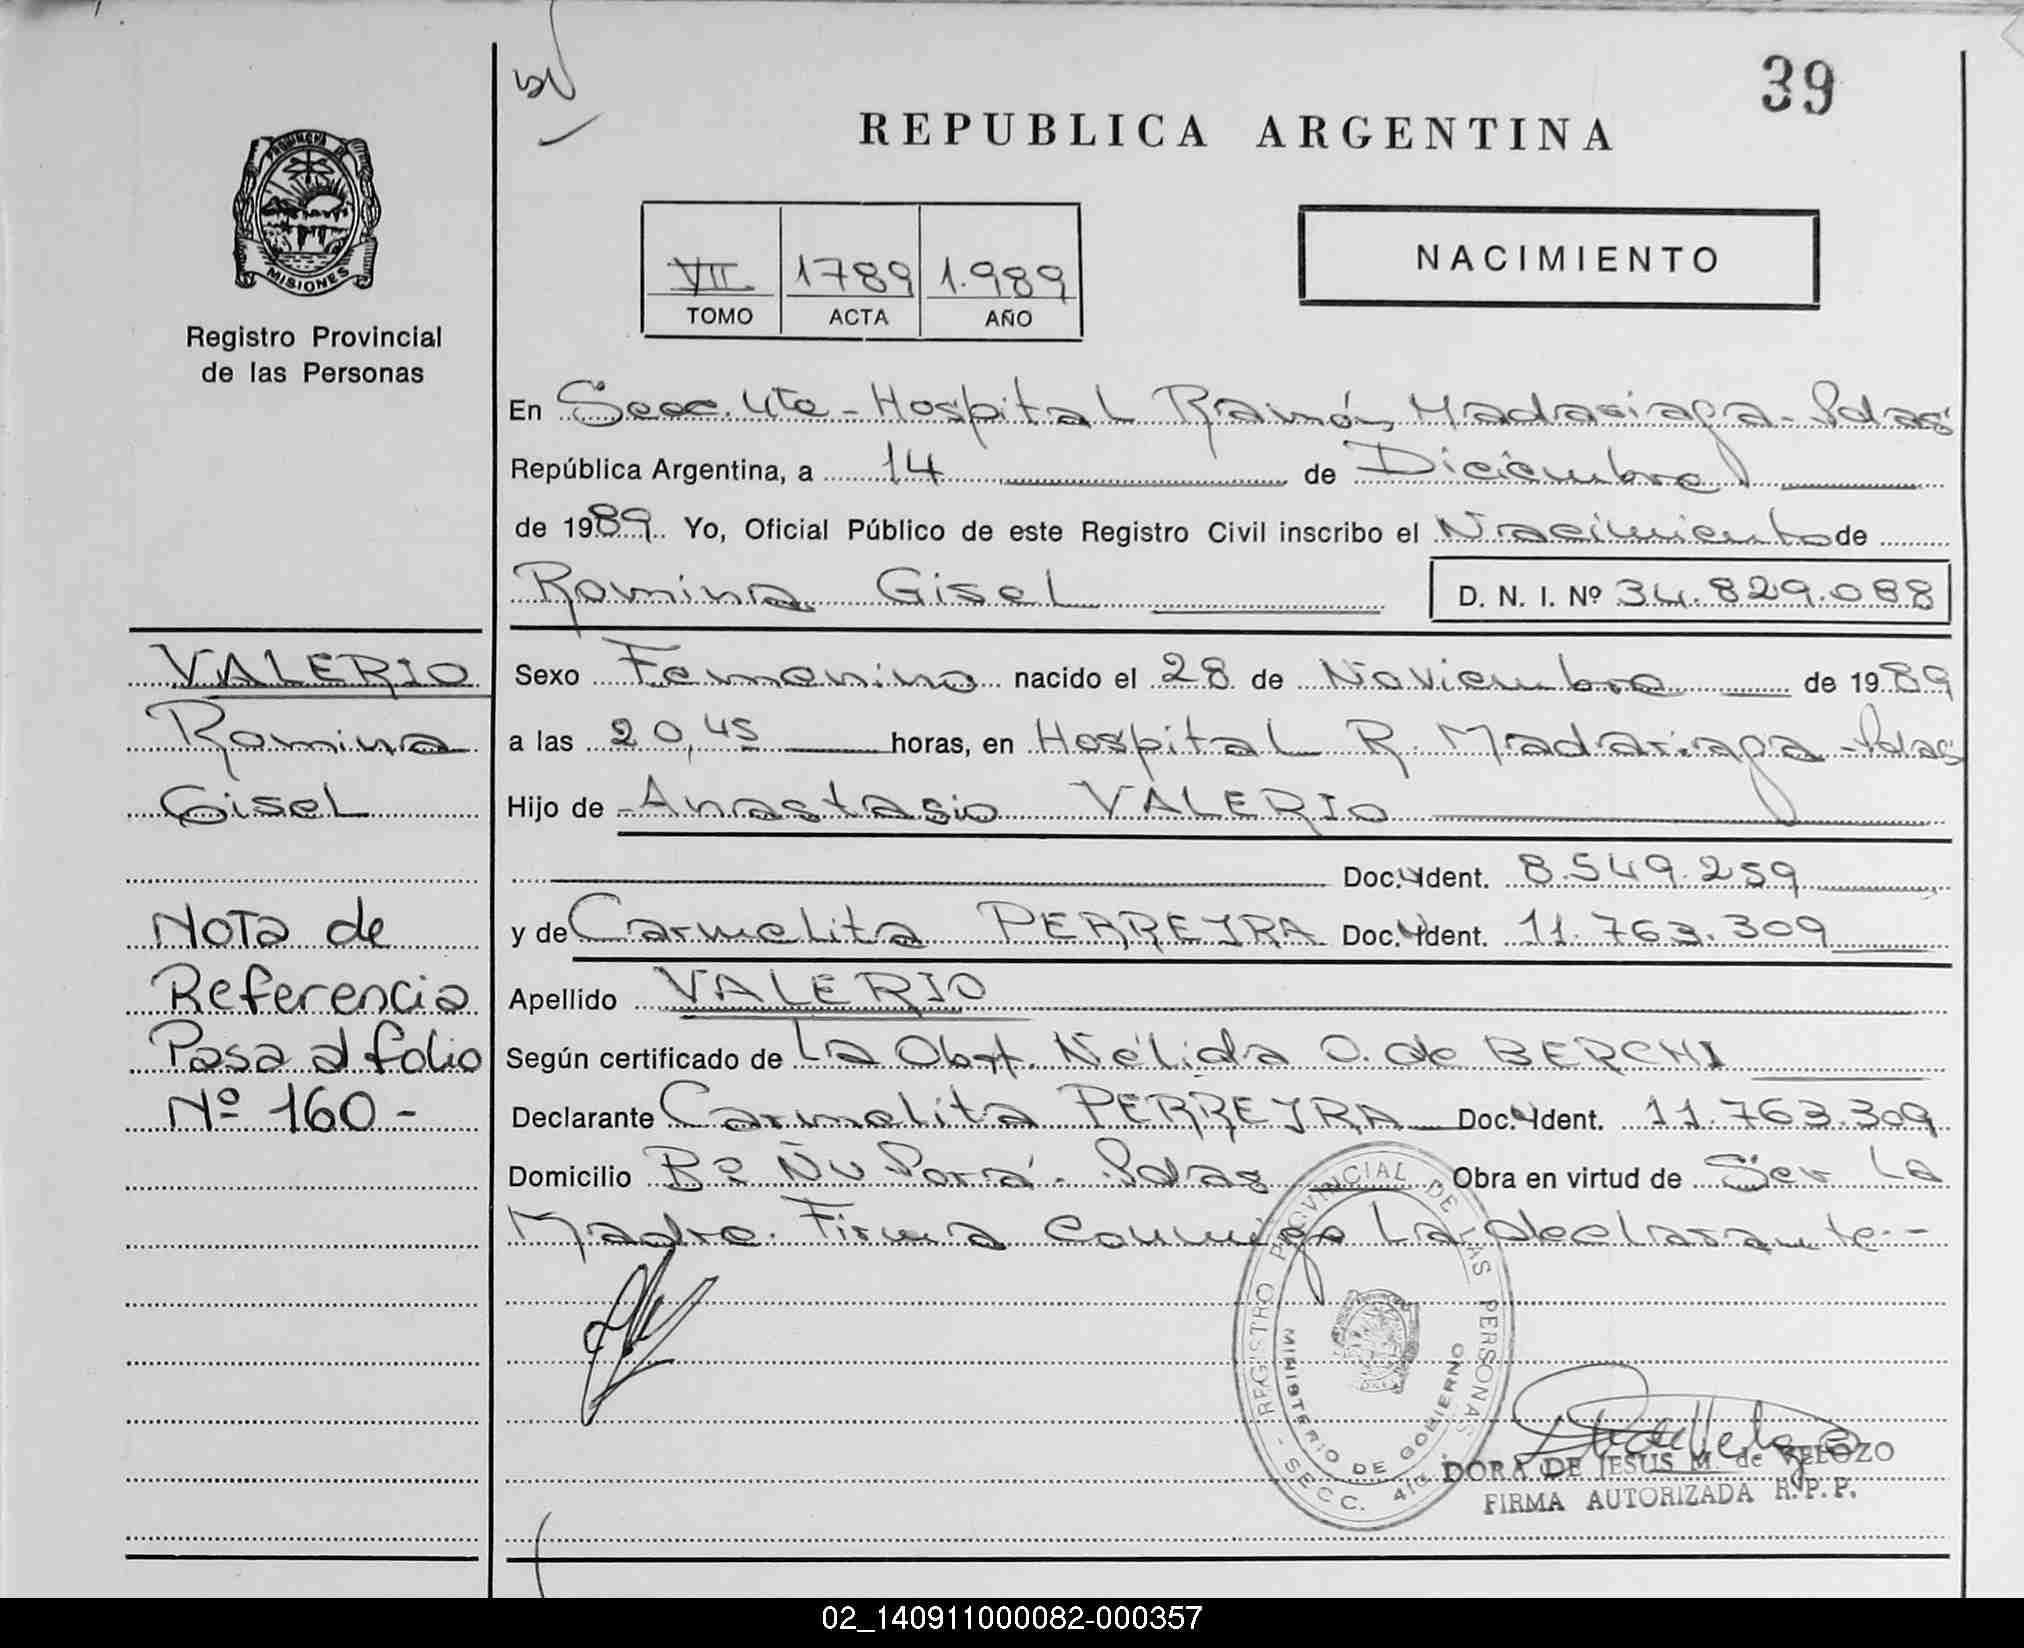 39
REPUBLICA ARGENTINA
PROVINCIA DE
MISIONES
Registro Provincial
de las Personas
VII 1789 1.989
TOMO ACTA AÑO
NACIMIENTO
En Secc. 4ta - Hospital Ramón Madariaga - Pdas
República Argentina, a 14 de Diciembre
de 1989. Yo, Oficial Público de este Registro Civil inscribo el Nacimiento de
Romina Gisel D. N. I. Nº 34.829.088
VALERIO
Romina
Gisel
Nota de
Referencia
Pasa al folio
Nº 160 -
Sexo Femenino nacido el 28 de Noviembre de 1989
a las 20,45 horas, en Hospital R. Madariaga - Pdas
Hijo de Anastasio VALERIO
Doc. Ident. 8.549.259
y de Carmelita PERREYRA Doc. Ident. 11.763.309
Apellido VALERIO
Según certificado de La Obst. Nélida O. de BERCHI
Declarante Carmelita PERREYRA Doc. Ident. 11.763.309
Domicilio Bº Ñu Porá - Pdas Obra en virtud de Ser La
Madre. Firma Conmigo La declarante.-
REGISTRO PROVINCIAL DE LAS PERSONAS
MINISTERIO DE GOBIERNO
- SECC. 4ta. -
DORA DE JESUS M. de VELOZO
FIRMA AUTORIZADA R.P.P.
02_140911000082-000357